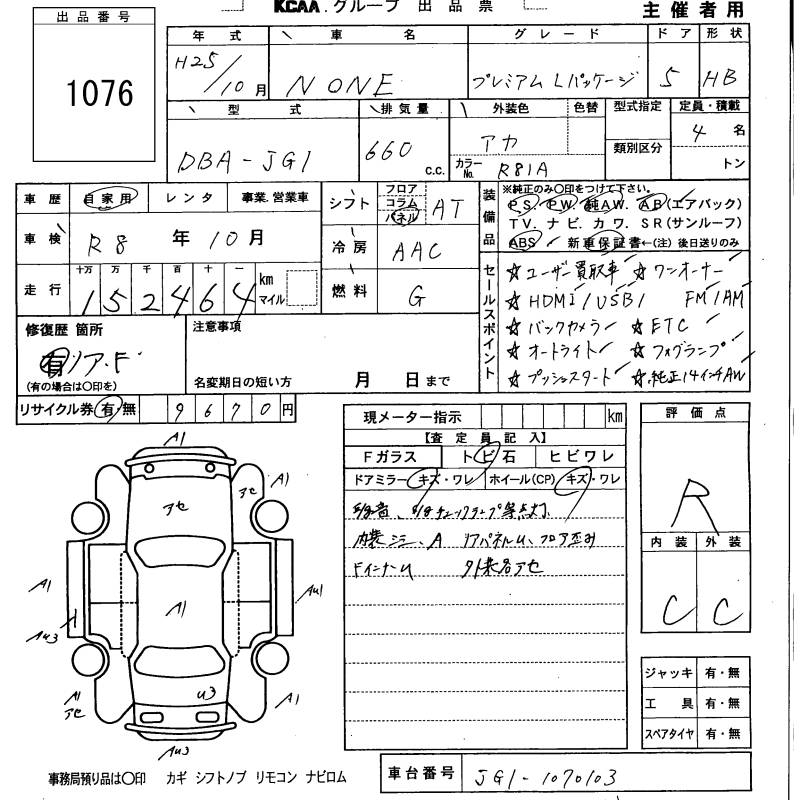 出品番号
1076
KCAA.グループ 出品票
主催者用
年式 車名 グレード ドア 形状
H25/10月 N ONE プレミアム Lパッケージ 5 HB
型式 排気量 外装色 色替 型式指定 定員・積載
DBA-JG1 660 c.c. アカ 類別区分 4名
カラーNo. R81A トン
車歴 自家用 レンタ 事業.営業車
車検 R8年10月
走行 十万 万 千 百 十 一
152464 km マイル
シフト フロア コラム パネル AT
冷房 AAC
燃料 G
装備品
※純正のみ○印をつけて下さい。
PS. PW. 純AW. AB(エアバック)
TV. ナビ. カワ. SR(サンルーフ)
ABS 新車保証書←(注) 後日送りのみ
セールスポイント
☆ユーザー買取車 ☆ワンオーナー
☆HDMI/USB/ FM/AM
☆バックカメラ ☆ETC
☆オートライト ☆フォグランプ
☆プッシュスタート ☆純正14インチAW
修復歴 箇所
有 リア.F
(有の場合は○印を)
注意事項
名変期日の短い方 月 日まで
リサイクル券 有・無 9670円
現メーター指示 km
【査定員記入】
Fガラス トビ石 ヒビワレ
ドアミラー キズ・ワレ ホイール(CP) キズ・ワレ
チェックランプ等点灯
内装シミ、A リアパネルU、フロア歪み
FインナーU 外装各アセ
評価点
R
内装 外装
C C
ジャッキ 有・無
工具 有・無
スペアタイヤ 有・無
A1
A1
アセ
アセ
A1
A1
AU1
A
AU3
A1
アセ
U3
A1
AU3
事務局預り品は○印 カギ シフトノブ リモコン ナビロム
車台番号 JG1-1070103